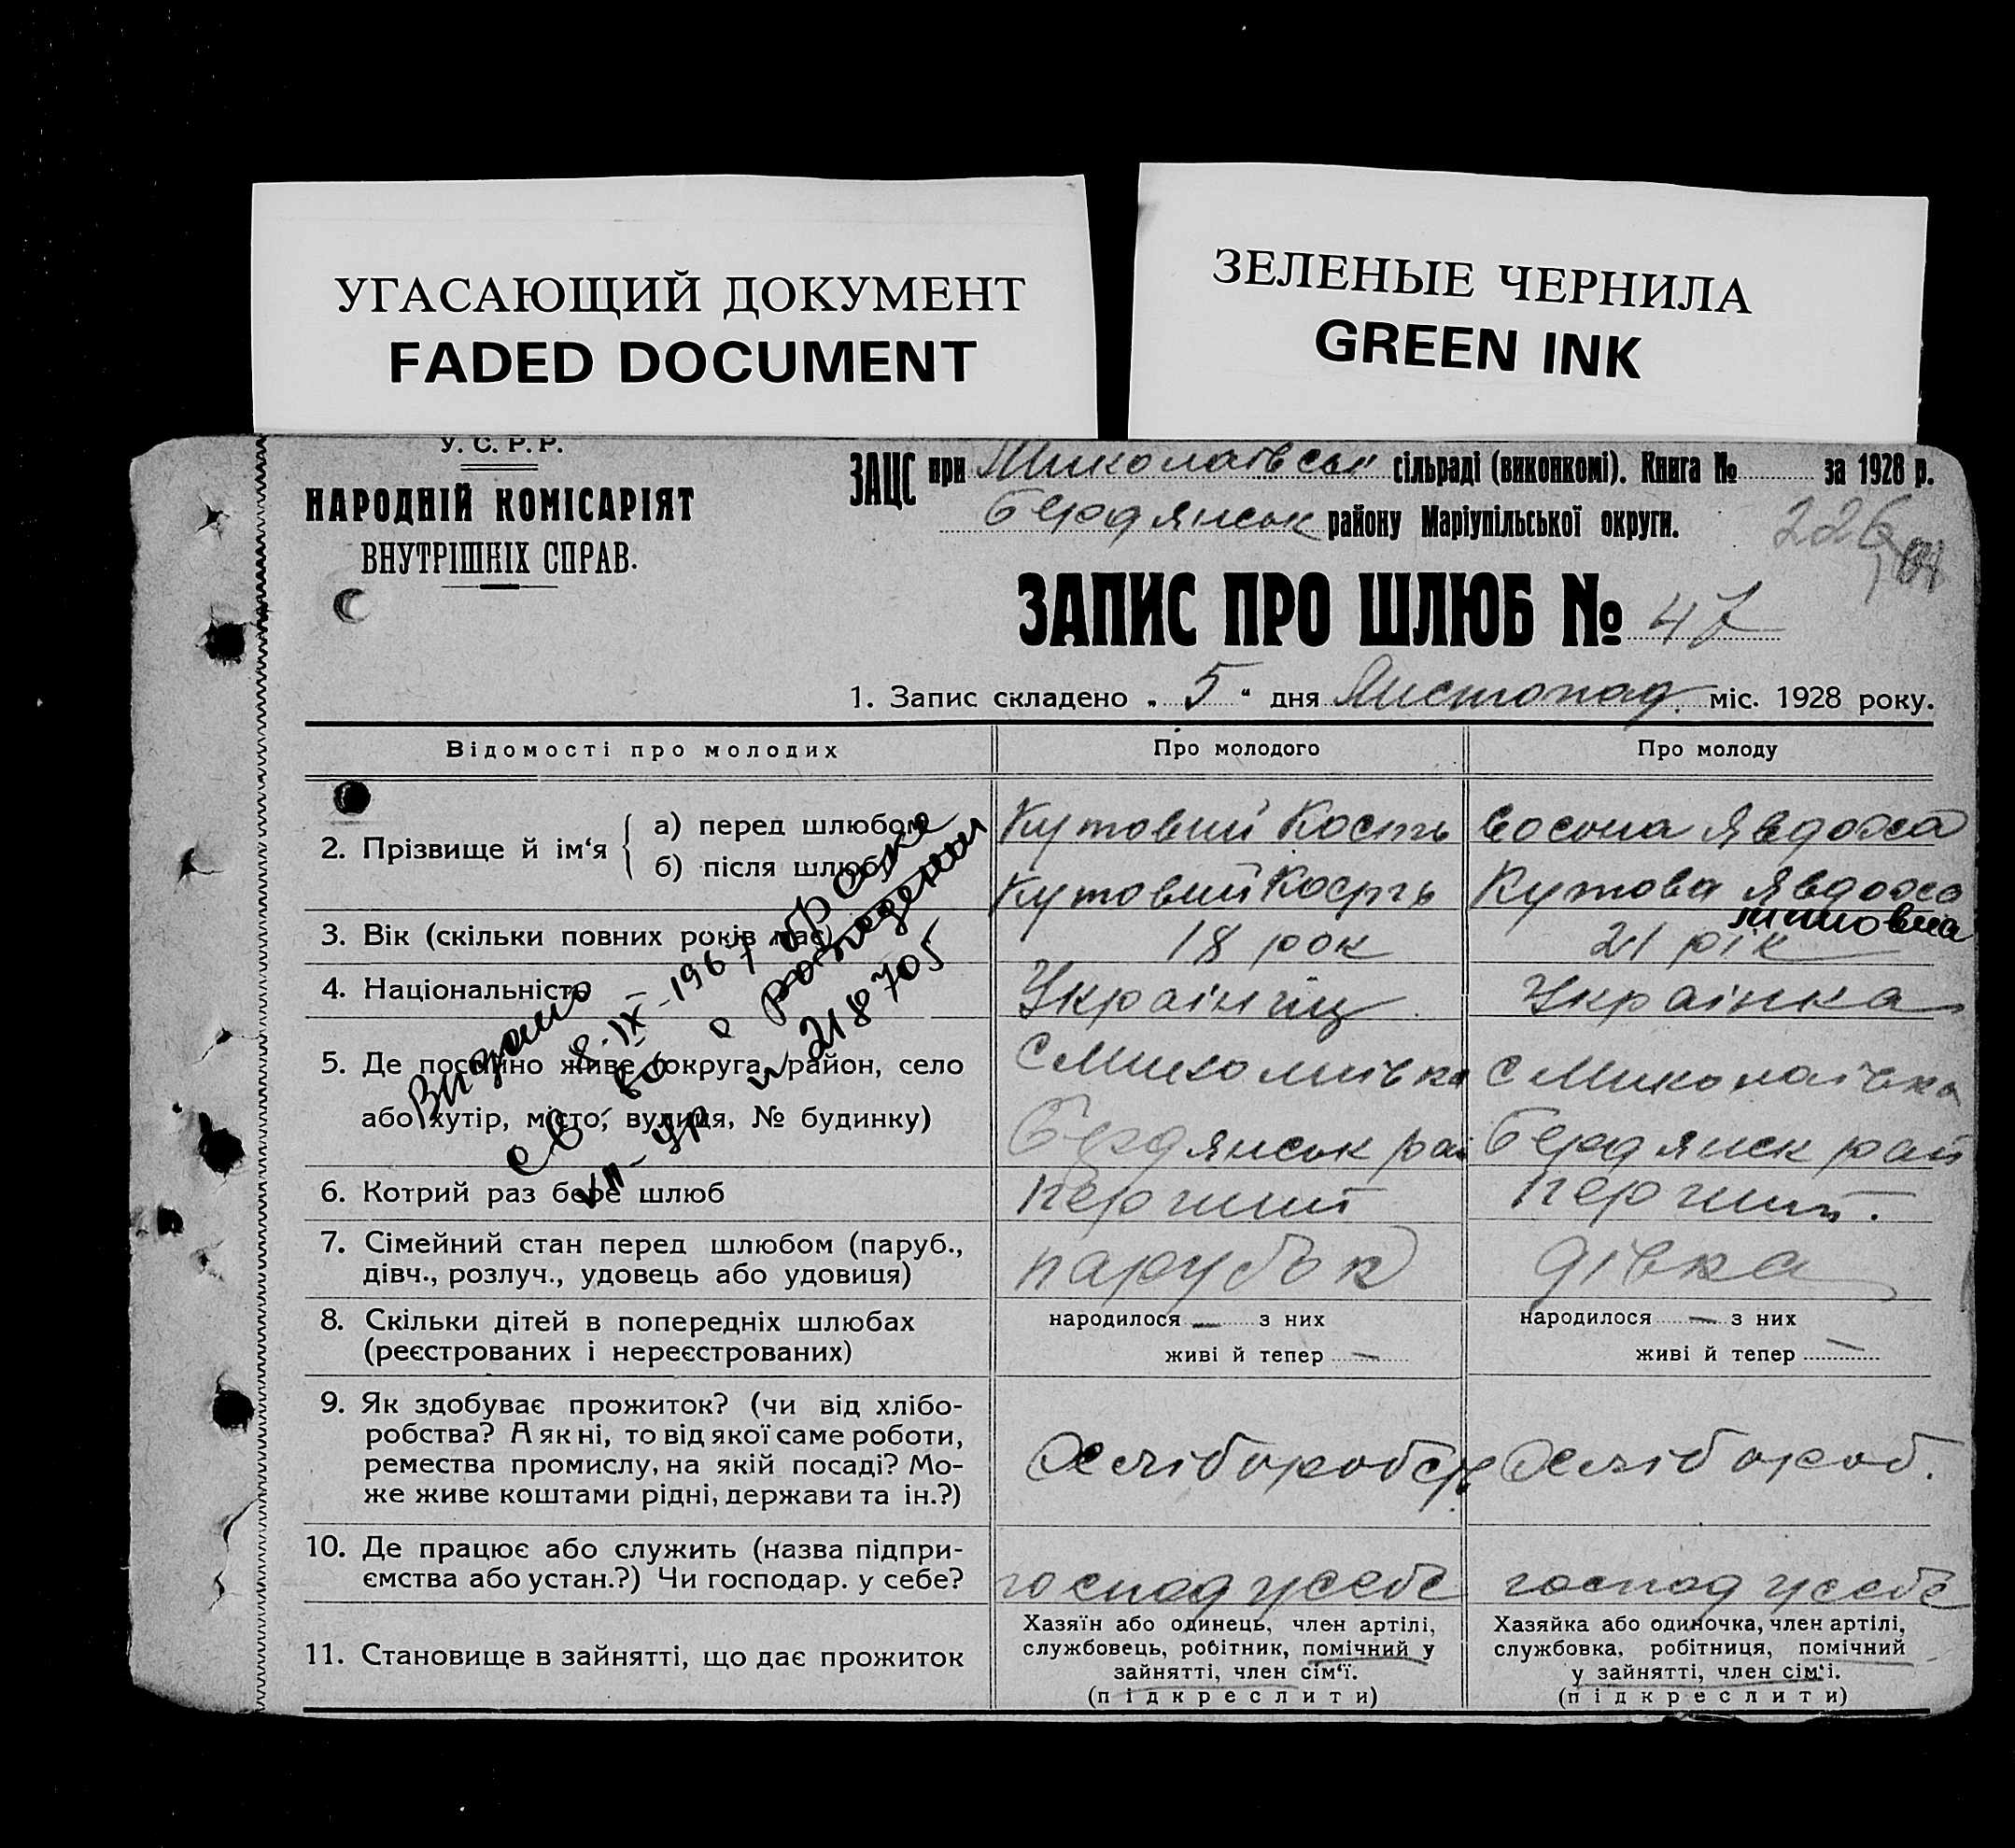 УГАСАЮЩИЙ ДОКУМЕНТ
FADED DOCUMENT
ЗЕЛЕНЫЕ ЧЕРНИЛА
GREEN INK
У. С. Р. Р.
НАРОДНІЙ КОМІСАРІЯТ
ВНУТРІШНІХ СПРАВ.
ЗАЦС при Миколаівськ сільраді (виконкомі). Книга № за 1928 р.
Бердянськ района Маріупільської округи.
226
ЗАПИС ПРО ШЛЮБ № 47
1. Запис складено „ 5 “ дня Листопад. міс. 1928 року.
Відомості про молодих Про молодого Про молоду
2. Прізвище й ім‘я
а) перед шлюбом Кутовий Кость Явдоха
б) після шлюбу Кутовий Кость Кутова Явдоха
3. Вік (скільки повних років має) 18 рок 21 рік
4. Національність Украіниц Украінка
5. Де постійно живе (округа, район, село с Миколаівка с Миколаівка
або хутір, місто, вулиця, № будинку) Бердянськ рай Бердянск рай
6. Котрий раз бере шлюб перший перший.
7. Сімейний стан перед шлюбом (паруб.,
дівч., розлуч., удовець або удовиця) парубок дівка
8. Скільки дітей в попередніх шлюбах народилося — з них народилося — з них
(реєстрованих і нереєстрованих) живі й тепер — живі й тепер —
9. Як здобуває прожиток? (чи від хлібо-
робства? А як ні, то від якої саме роботи,
ремества промислу, на якій посаді? Мо-
же живе коштами рідні, держави та ін.?)
Хлібороб.
10. Де працює або служить (назва підпри-
ємства або устан.?) Чи господар. у себе? господ усебе господ усебе
11. Становище в зайнятті, що дає прожиток
Хазяїн або одинець, член артілі,
службовець, робітник, помічний у
зайнятті, член сім‘ї.
(підкреслити)
Хазяйка або одиночка, член артілі,
службовка, робітниця, помічний
у зайнятті, член сім‘ї.
(підкреслити)
Видано
8-IX-1967
св во о
о рождении
218705